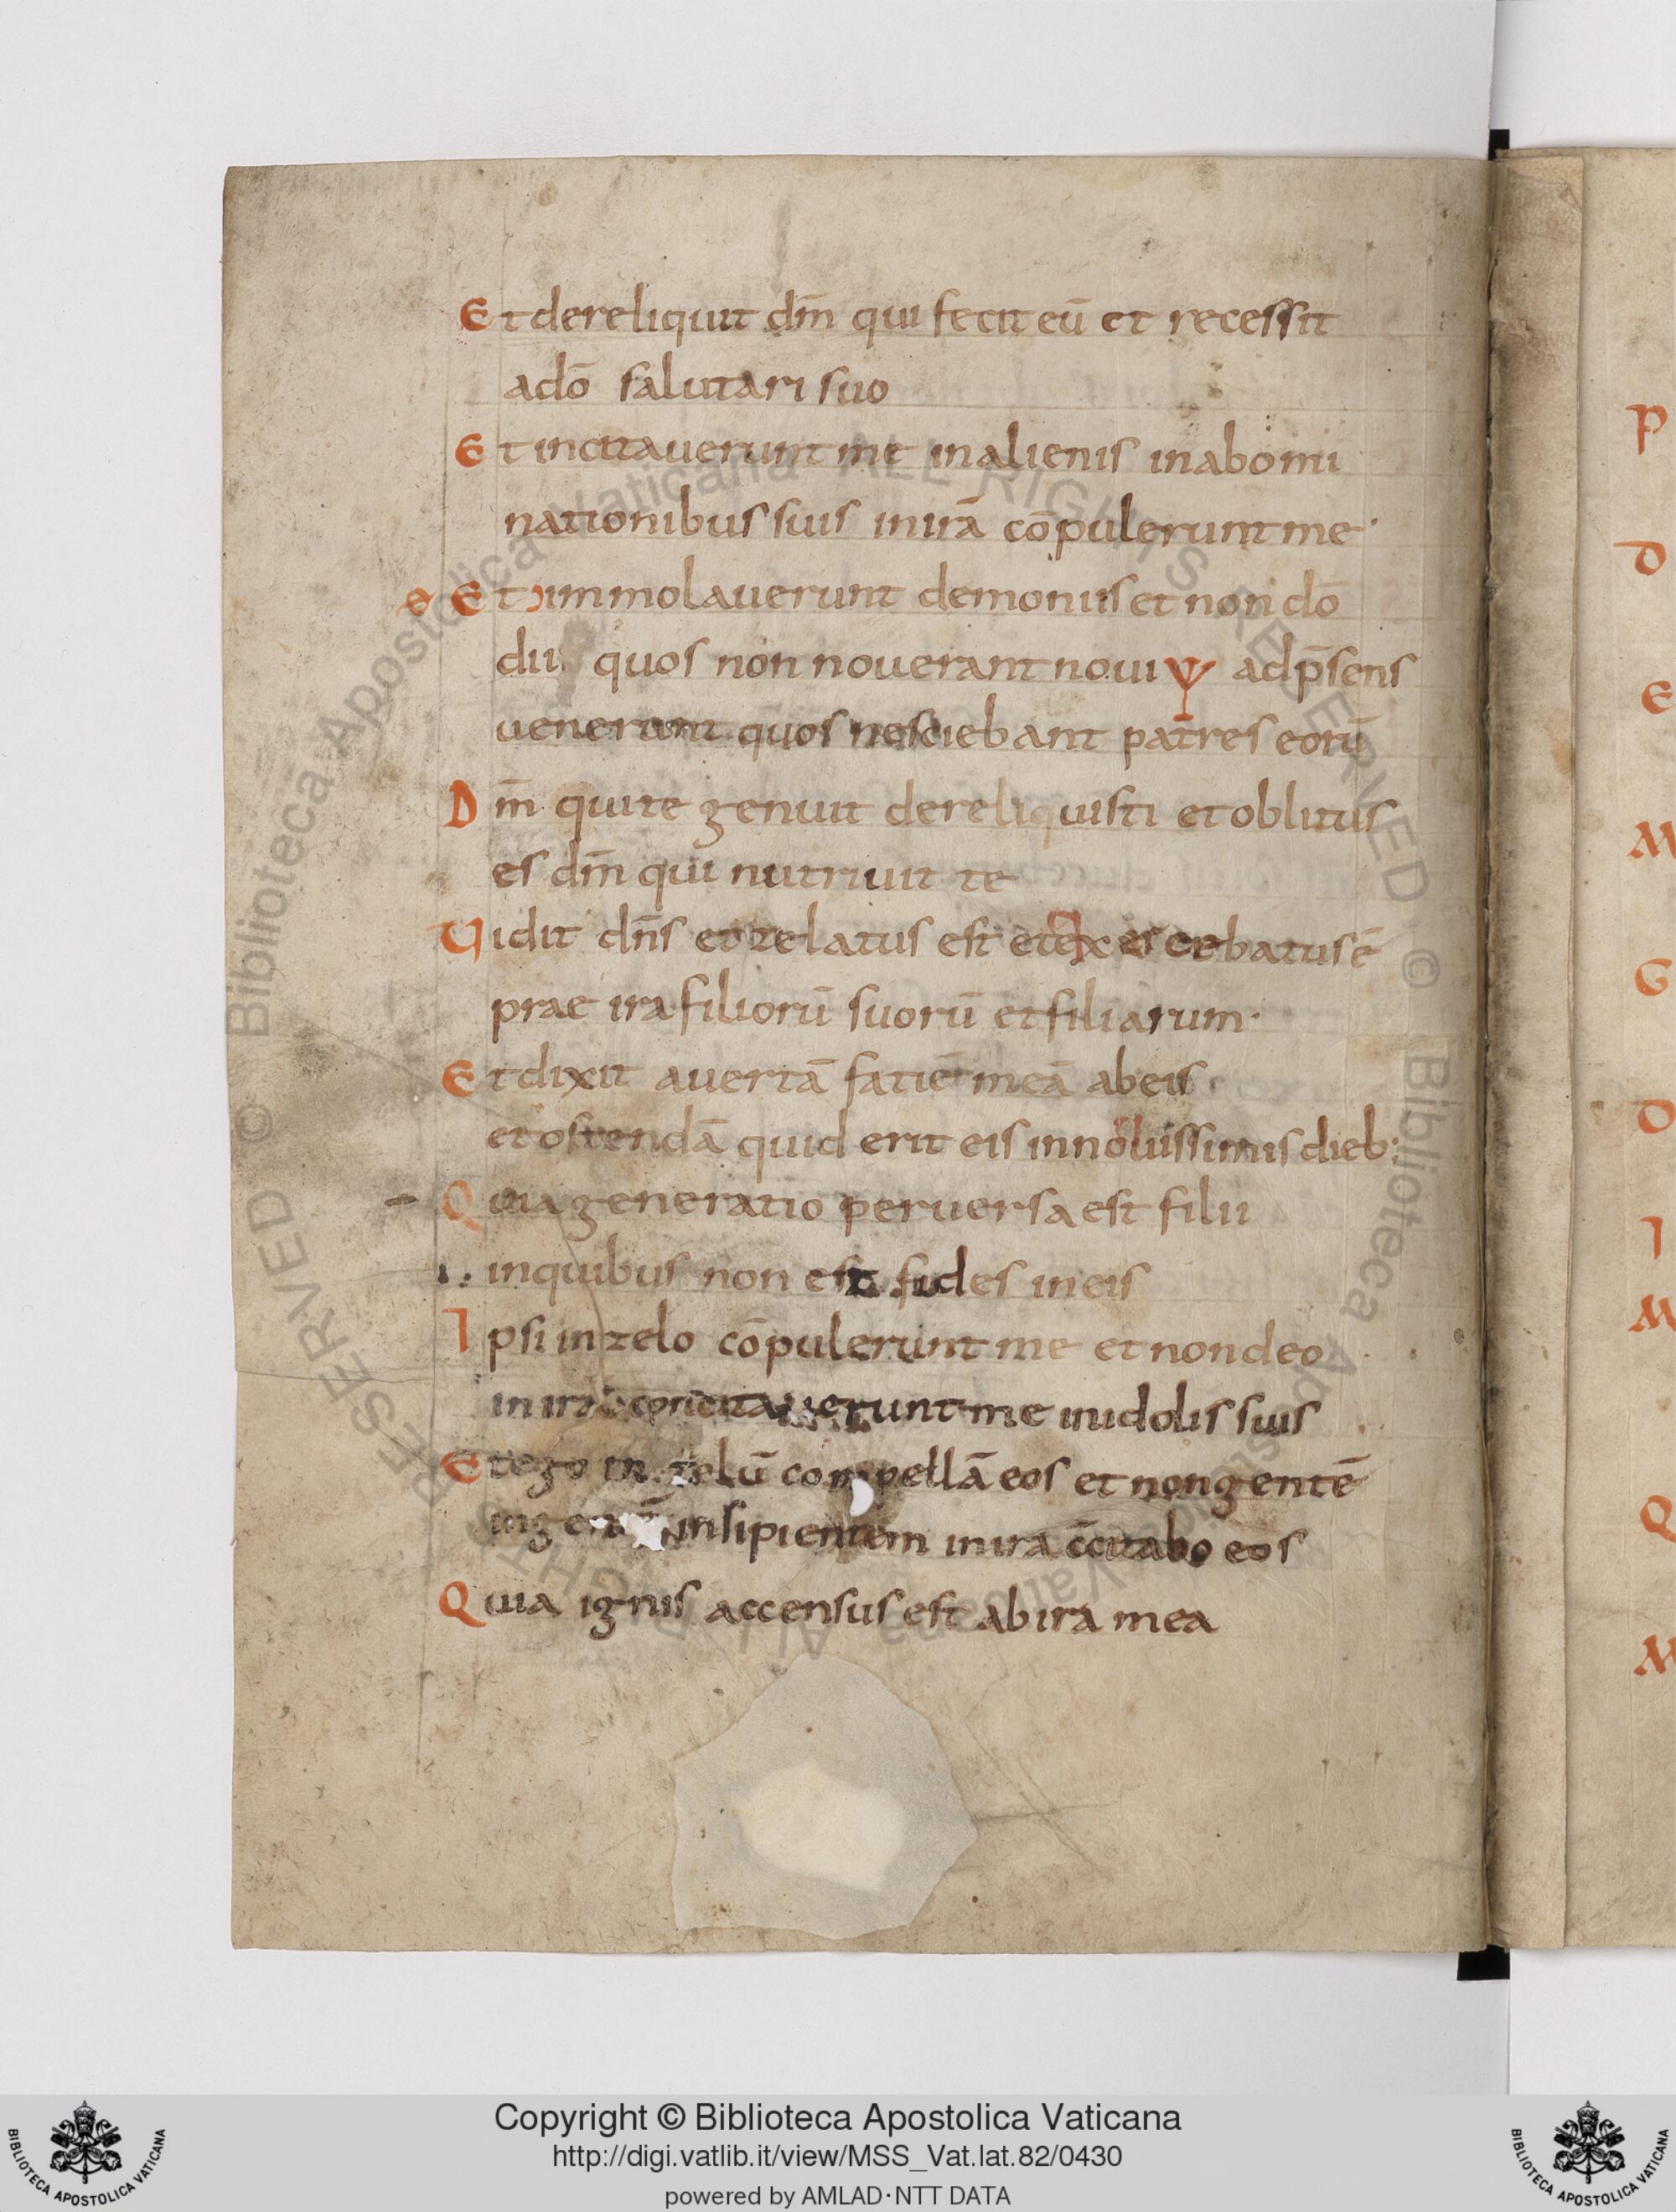 Et dereliquit dm̄ qui fecit eū et recessit
adō salutari suo
Et incitaverunt me in alienis in abomi
nationibus suis in irā cōpulerunt me·
Et immolaverunt demoniis et non dō
dii quos non noverant novi adp̄sens
venerunt quos nesciebant patres eorū
Dm̄ qui te genuit dereliquisti et oblitus
es dm̄ qui nutrivit te
Vidit dn̄s et zelatus est et batus ē
prae ira filiorū suorū et filiarum·
Et dixit avertā fatiē meā ab eis
et ostendā quid erit eis in novissimis dieb:
Quia generatio perversa est filii
in quibus non est fides in eis
Ipsi in zelo cōpulerunt me et non deo
in ira concitaverunt me in idolis suis
Et ego in zelū compellā eos et non gentē
in insipientem in ira c̄citabo eos
Quia ignis accensus est ab ira mea
P
D
E
M
G
D
I
M
Q
M
© Biblioteca Apostolica Vaticana ALL RIGHTS RESERVED
© Biblioteca Apostolica Vaticana ALL RIGHTS RESERVED
BIBLIOTECA APOSTOLICA VATICANA
Copyright © Biblioteca Apostolica Vaticana
http://digi.vatlib.it/view/MSS_Vat.lat.82/0430
powered by AMLAD·NTT DATA
BIBLIOTECA APOSTOLICA VATICANA